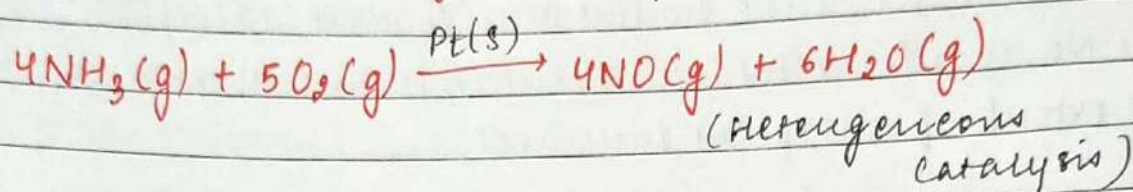 Pt(s)
4NH₃(g) + 5O₂(g) ⟶ 4NO(g) + 6H₂O(g)
(Heterogeneous
Catalysis)